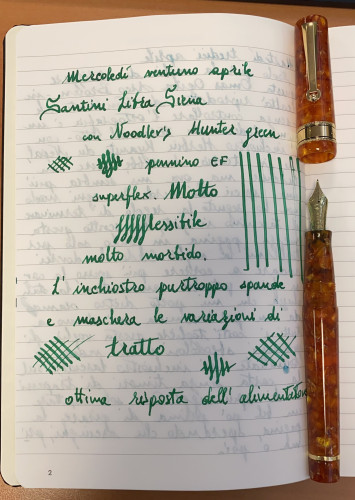 Mercoledì ventuno aprile
Santini Libra Sirua
con Noodler's Hunter green
pennino EF
superflex. Molto
flessibile
molto morbido.
L'inchiostro purtroppo spande
e maschera le variazioni di
tratto
ottima risposta dell'alimentatore
2